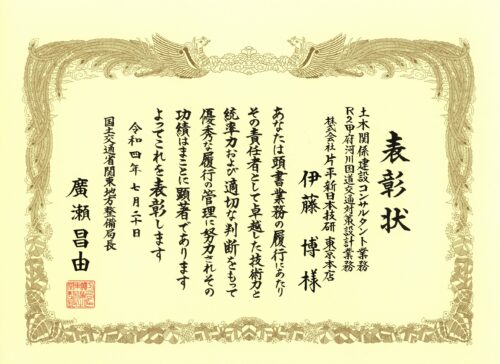 表彰状
土木関係建設コンサルタント業務
R2甲府河川国道交通対策設計業務
株式会社片平新日本技研 東京本店
伊藤 博 様
あなたは頭書業務の履行にあたり
その責任者として卓越した技術力と
統率力および適切な判断をもって
優秀な履行の管理に努力されその
功績はまことに顕著であります
よってこれを表彰します
令和四年 七月二十日
国土交通省関東地方整備局長
廣瀬昌由